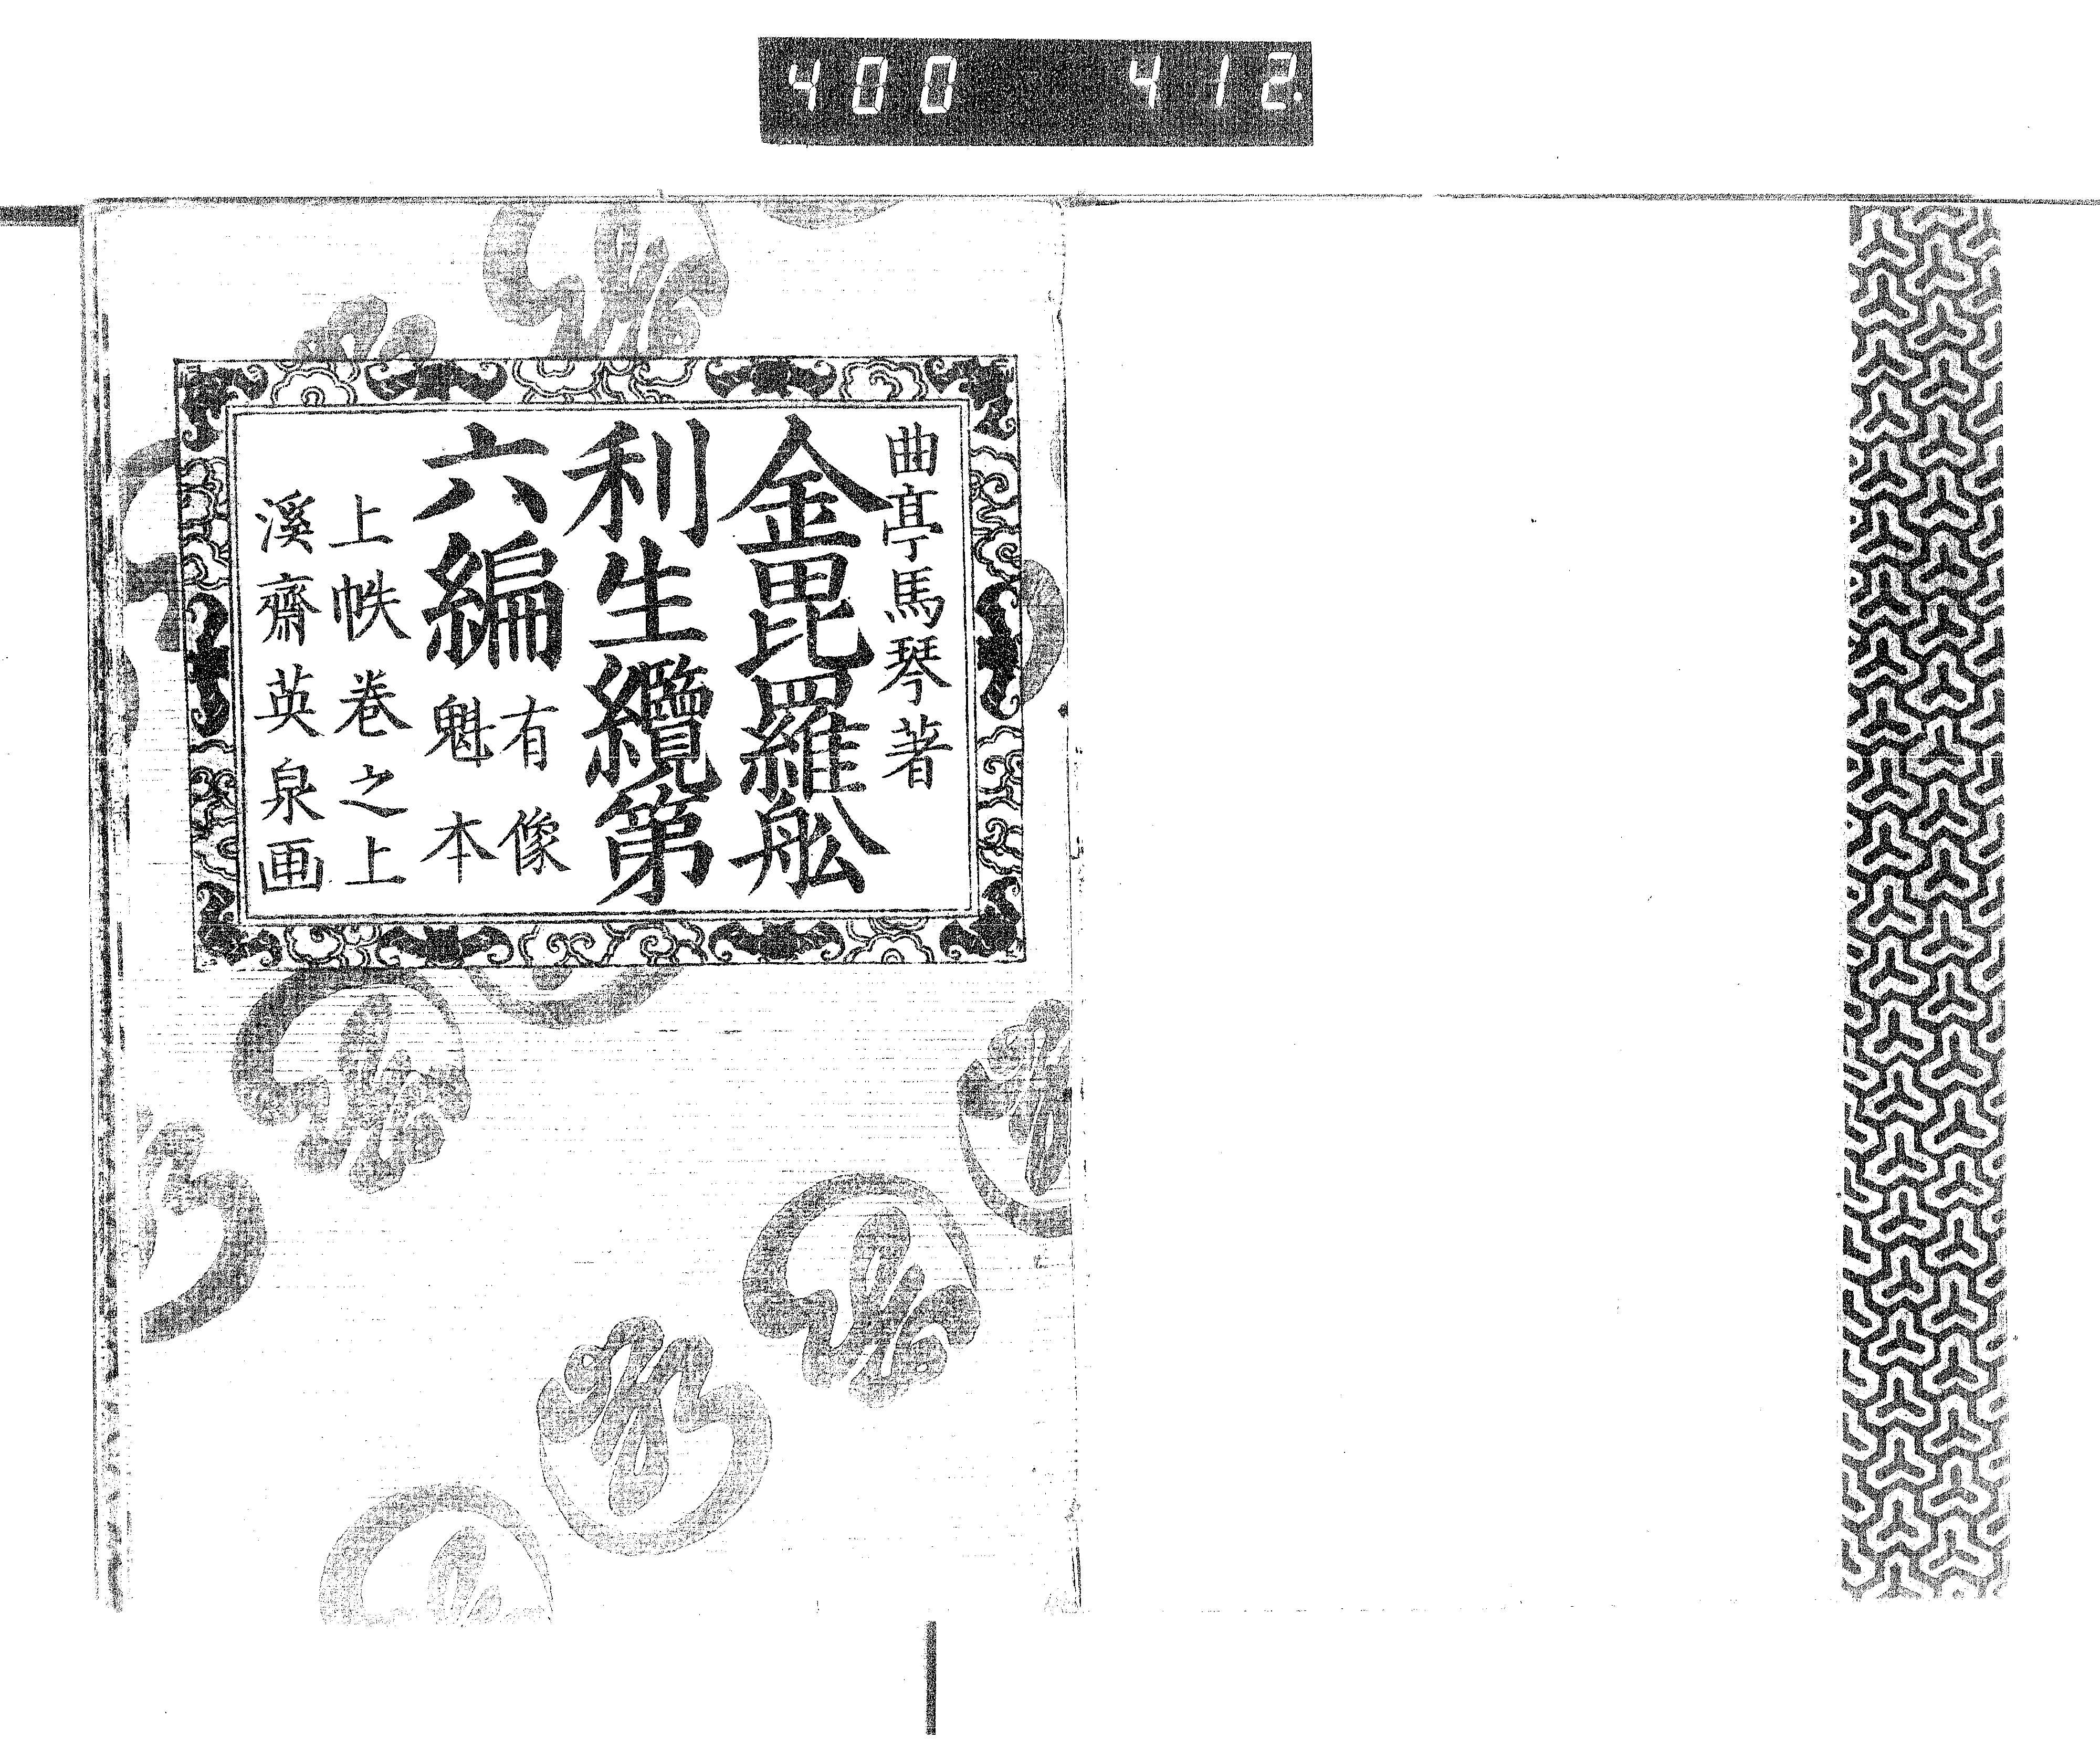 400 412.
曲亭馬琴著
金毘羅舩
利生纜第
六編
有像
魁本
上帙巻之上
溪齋英泉画